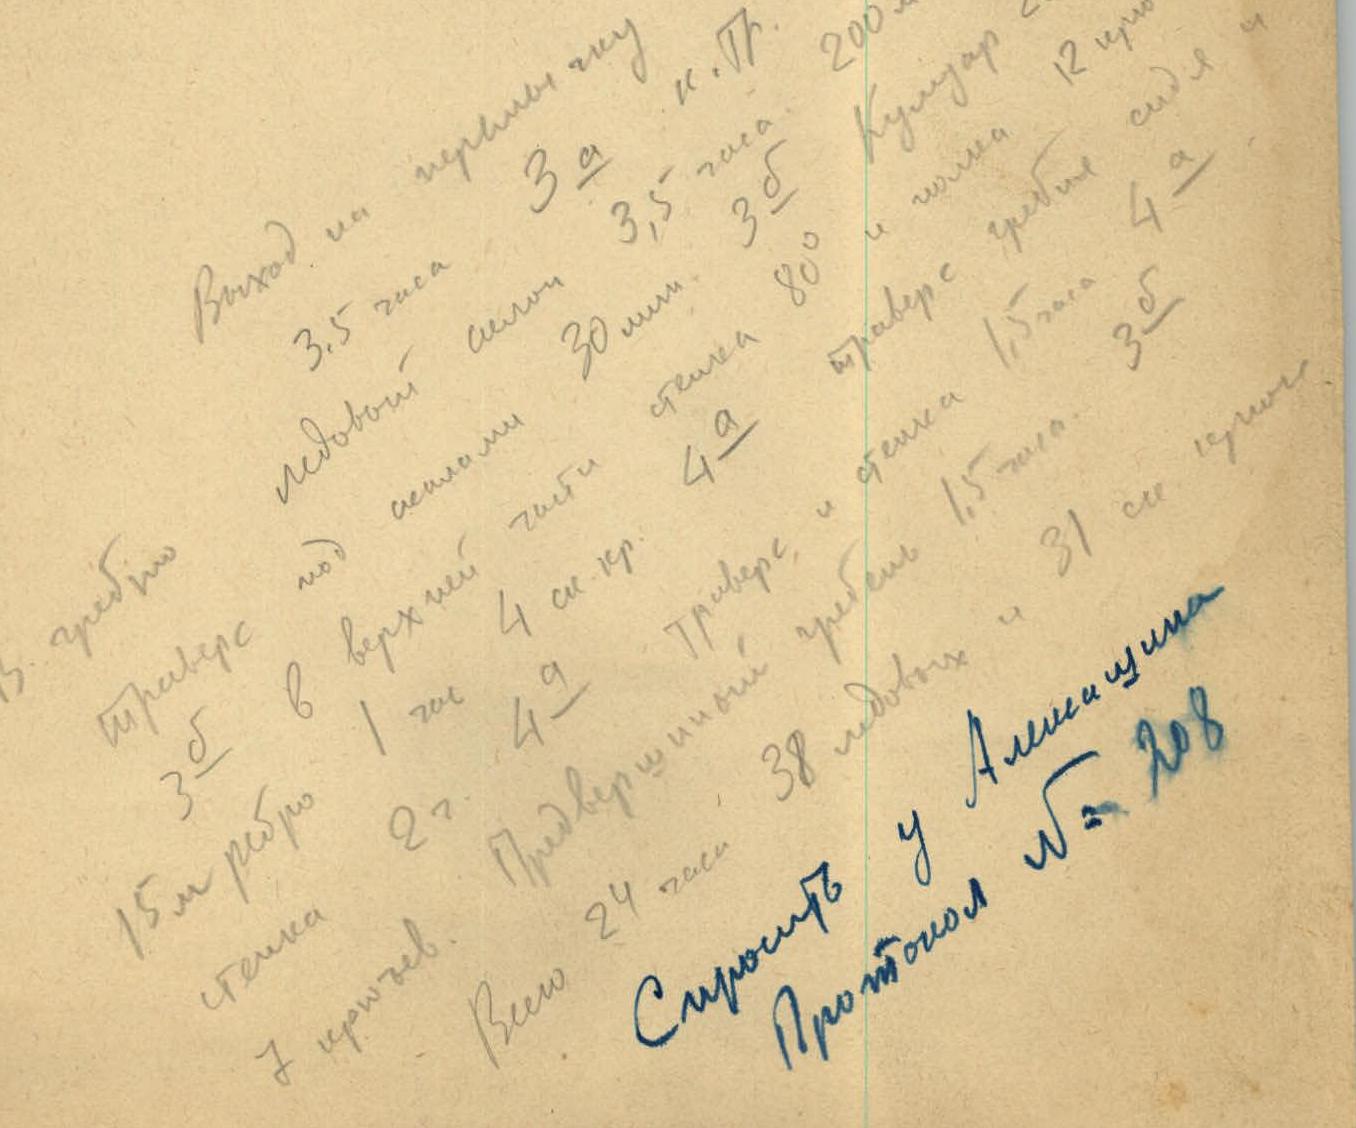 Выход на перемычку
3,5 часа 3а к.Тр.
В. гребню ледовый склон 3,5 часа. 200 м
траверс под скалами 30 мин. 3б Кулуар
3б в верхней части стенка 80° и полка 12 крю
15 м ребро 1 час 4 ск.кр. 4а траверс гребня сидя и
стенка 2 ч. 4а Траверс и стенка 1,5 часа 4а.
7 крючьев. Предвершинный гребень 1,5 часа. 3б
Всего 24 часа, 38 ледовых и 31 ск. крюч
Спросить у
Протокол № 208